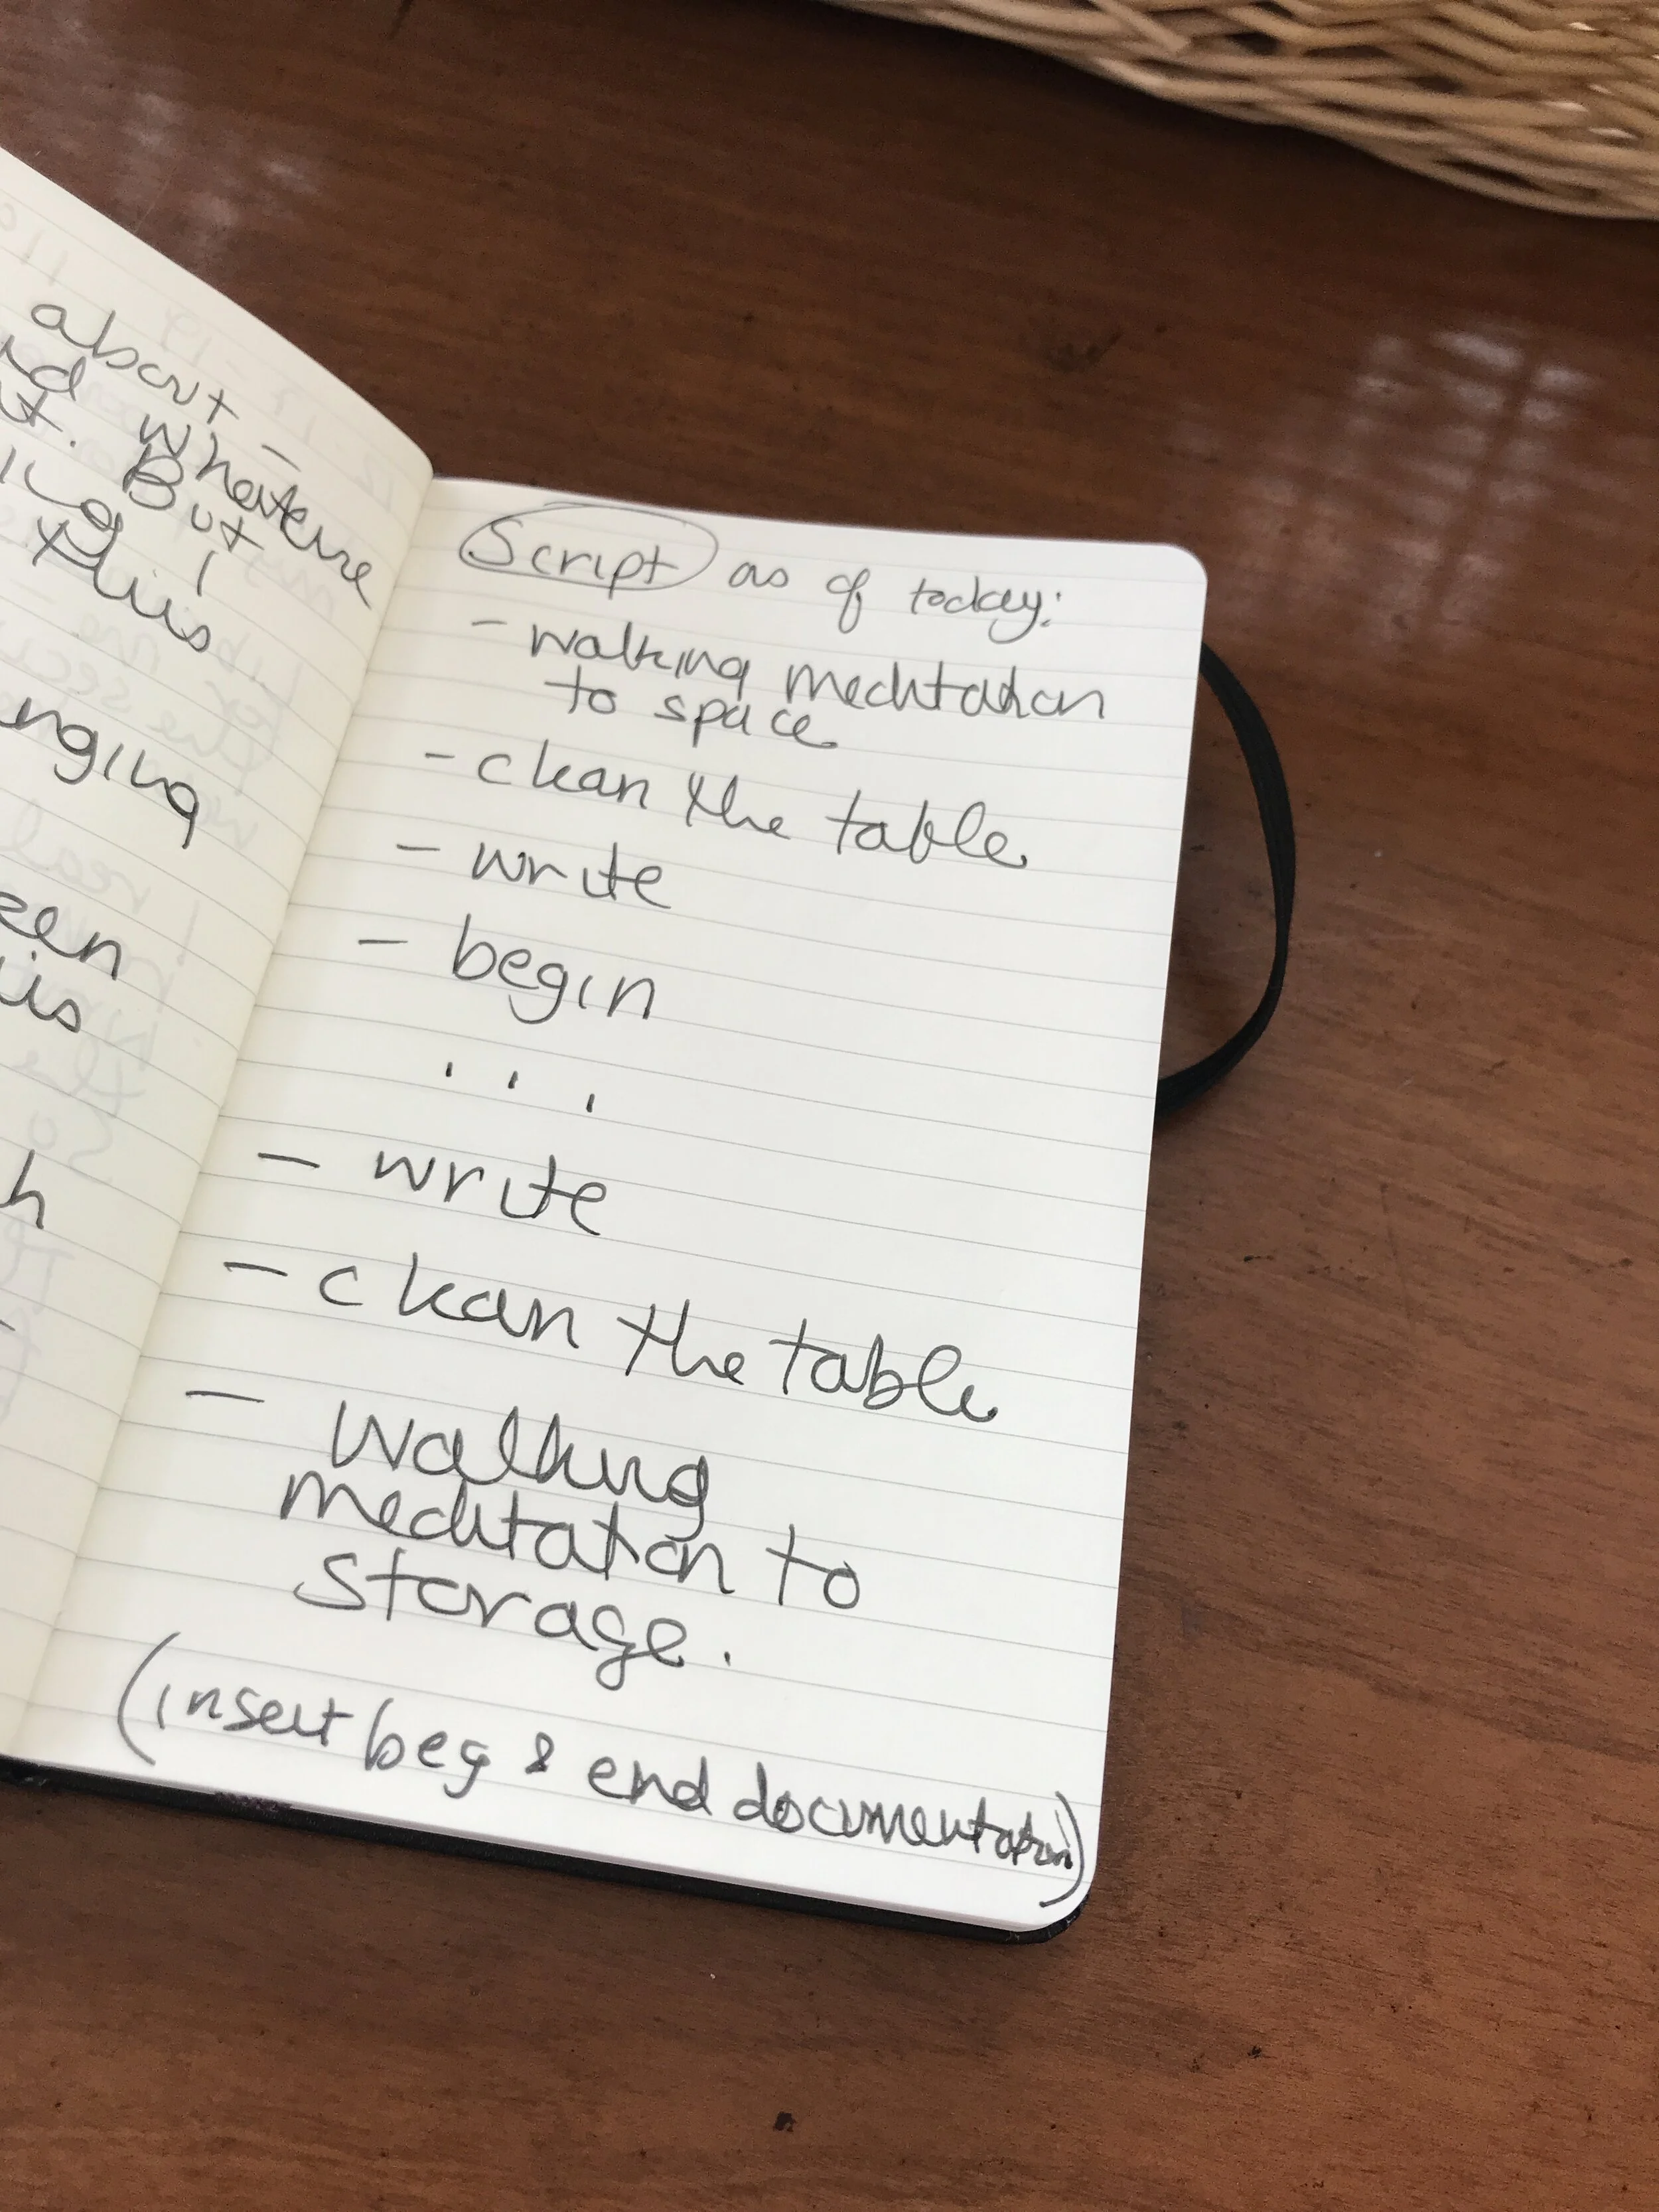 about –
whatever
t. But
I
this
nging
een
is
h
Script as of today:
- walking meditation
to space
- clean the table
- write
- begin
. . .
- write
- clean the table
- walking
meditation to
storage.
(insert beg & end documentation)